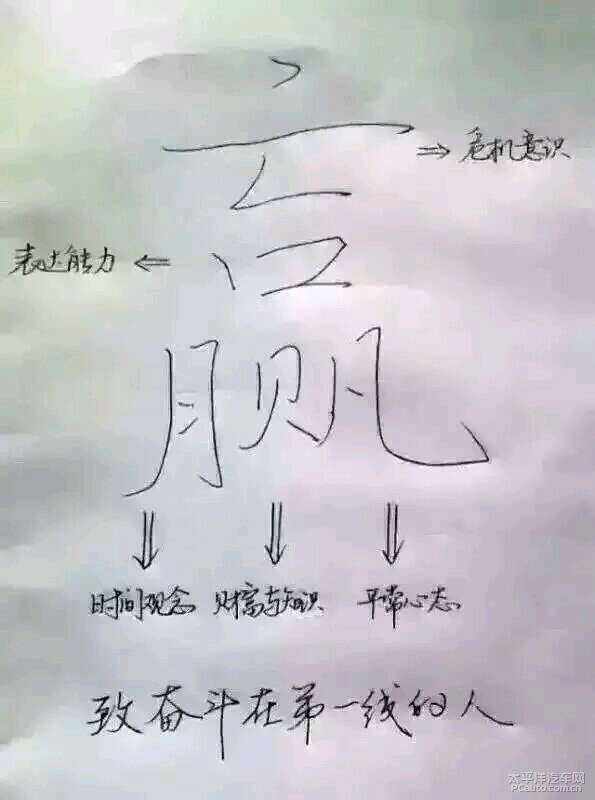 赢
⇒ 危机意识
表达能力 ⇐
时间观念 财富与知识 平常心态
致奋斗在第一线的人
太平洋汽车网
PCauto.com.cn